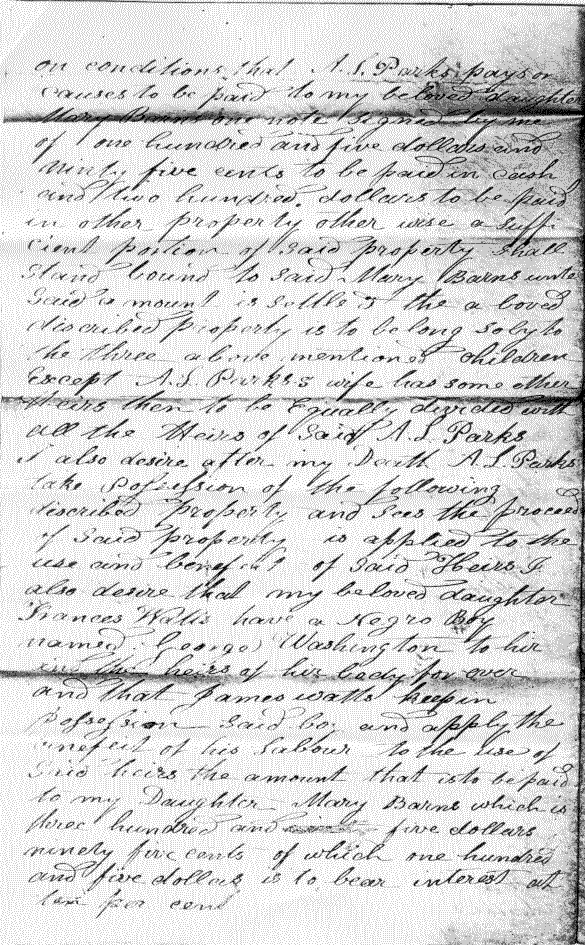 on conditions that A. L. Parks pays or
causes to be paid to my beloved daughter
Mary Barns one note signed by me
of one hundred and five dollars and
ninty five cents to be paid in cash
and two hundred dollars to be paid
in other property other wise a suffi
cient portion of said property shall
stand bound to said Mary Barns unte
said a mount is settled the a boved
described property is to be long soly to
the three above mentioned children
Except A. L. Parks's wife has some other
Heirs then to be Equally devided with
all the Heirs of said A L Parks
I also desire after my Death A L Parks
take Possession of the following
described Property and sees the proceed
of said property is applied to the
use and benefit of said Heirs I
also desire that my beloved daughter
Frances Watts have a Negro Boy
named George Washington to hir
and the heirs of hir body for over
and that James watts keep in
Possession said boy and apply the
benefeit of his Labour to the use of
said heirs the amount that is to be paid
to my Daughter Mary Barns which is
three hundred and five dollars
ninety five cents of which one hundred
and five dollars is to bear interest at
per cent